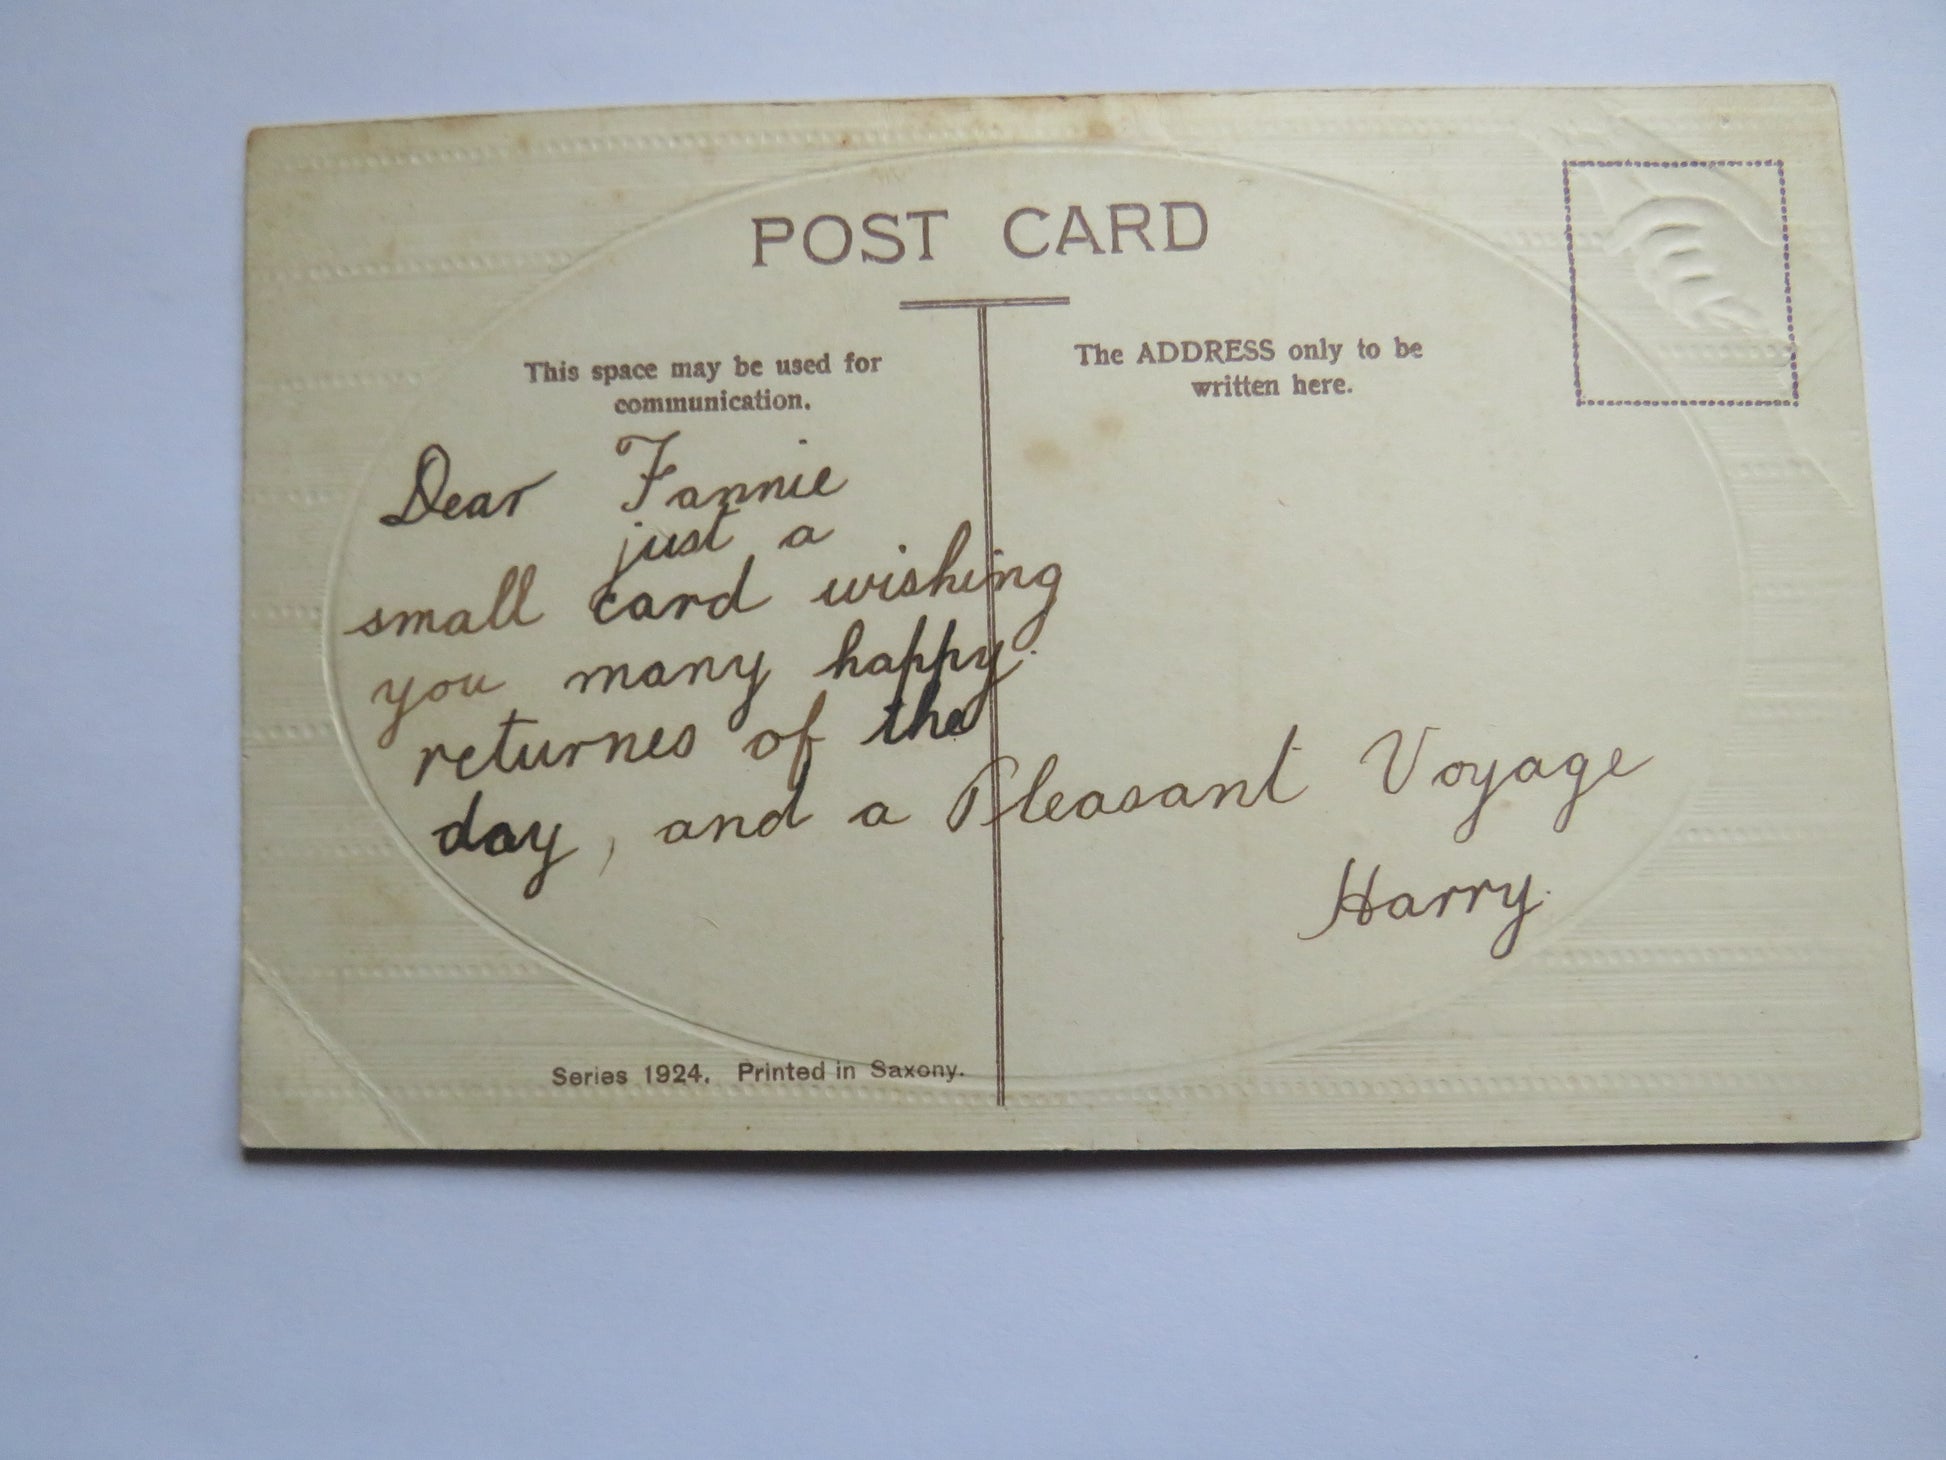 POST CARD
This space may be used for
communication.
The ADDRESS only to be
written here.
Dear Fannie
just a
small card wishing
you many happy
returnes of the
day, and a Pleasant Voyage
Harry.
Series 1924. Printed in Saxony.